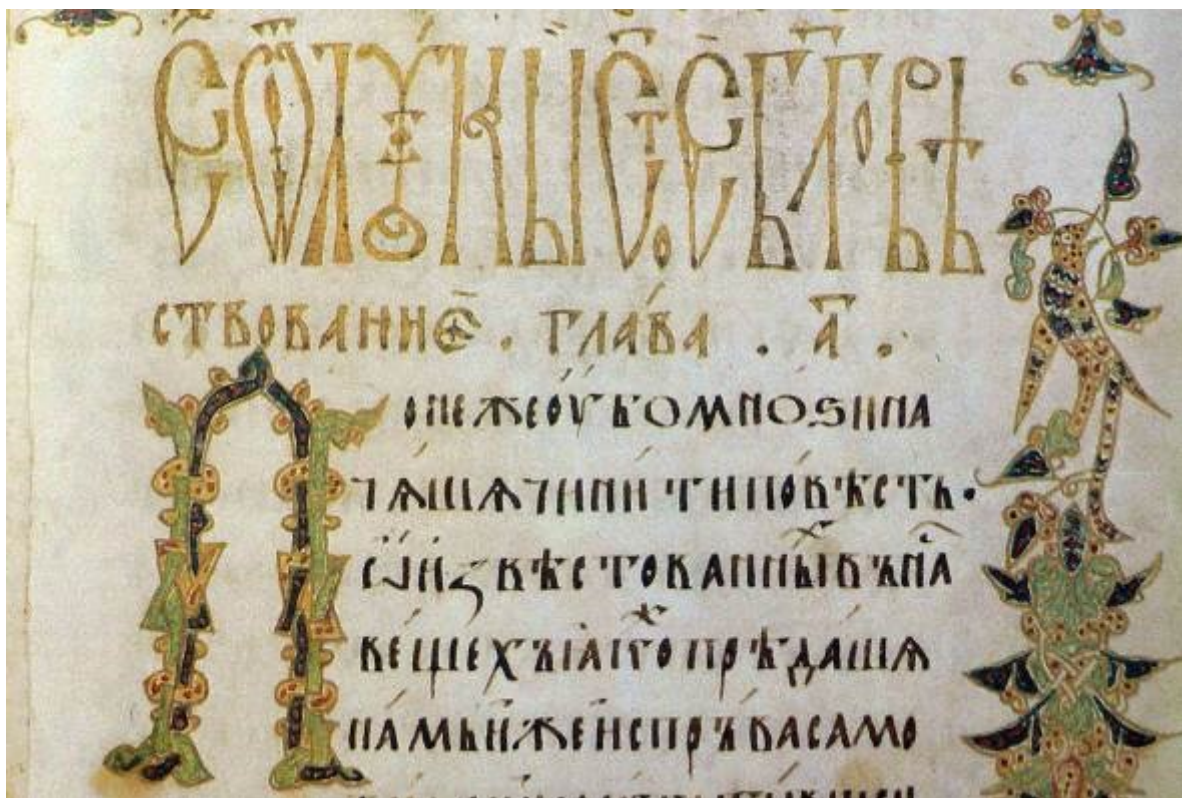 Є ѿ лꙋкы ст҃оє бл҃говѣ
ствованиє . глава . а҃ .
Понежеоубомноѕина
чѧшѧчинитиповѣсть·
ѡиꙁвѣстованныⷯвънаⷭ
вещехъіакоⷤпрѣдашѧ
намьижеиспръвасамо